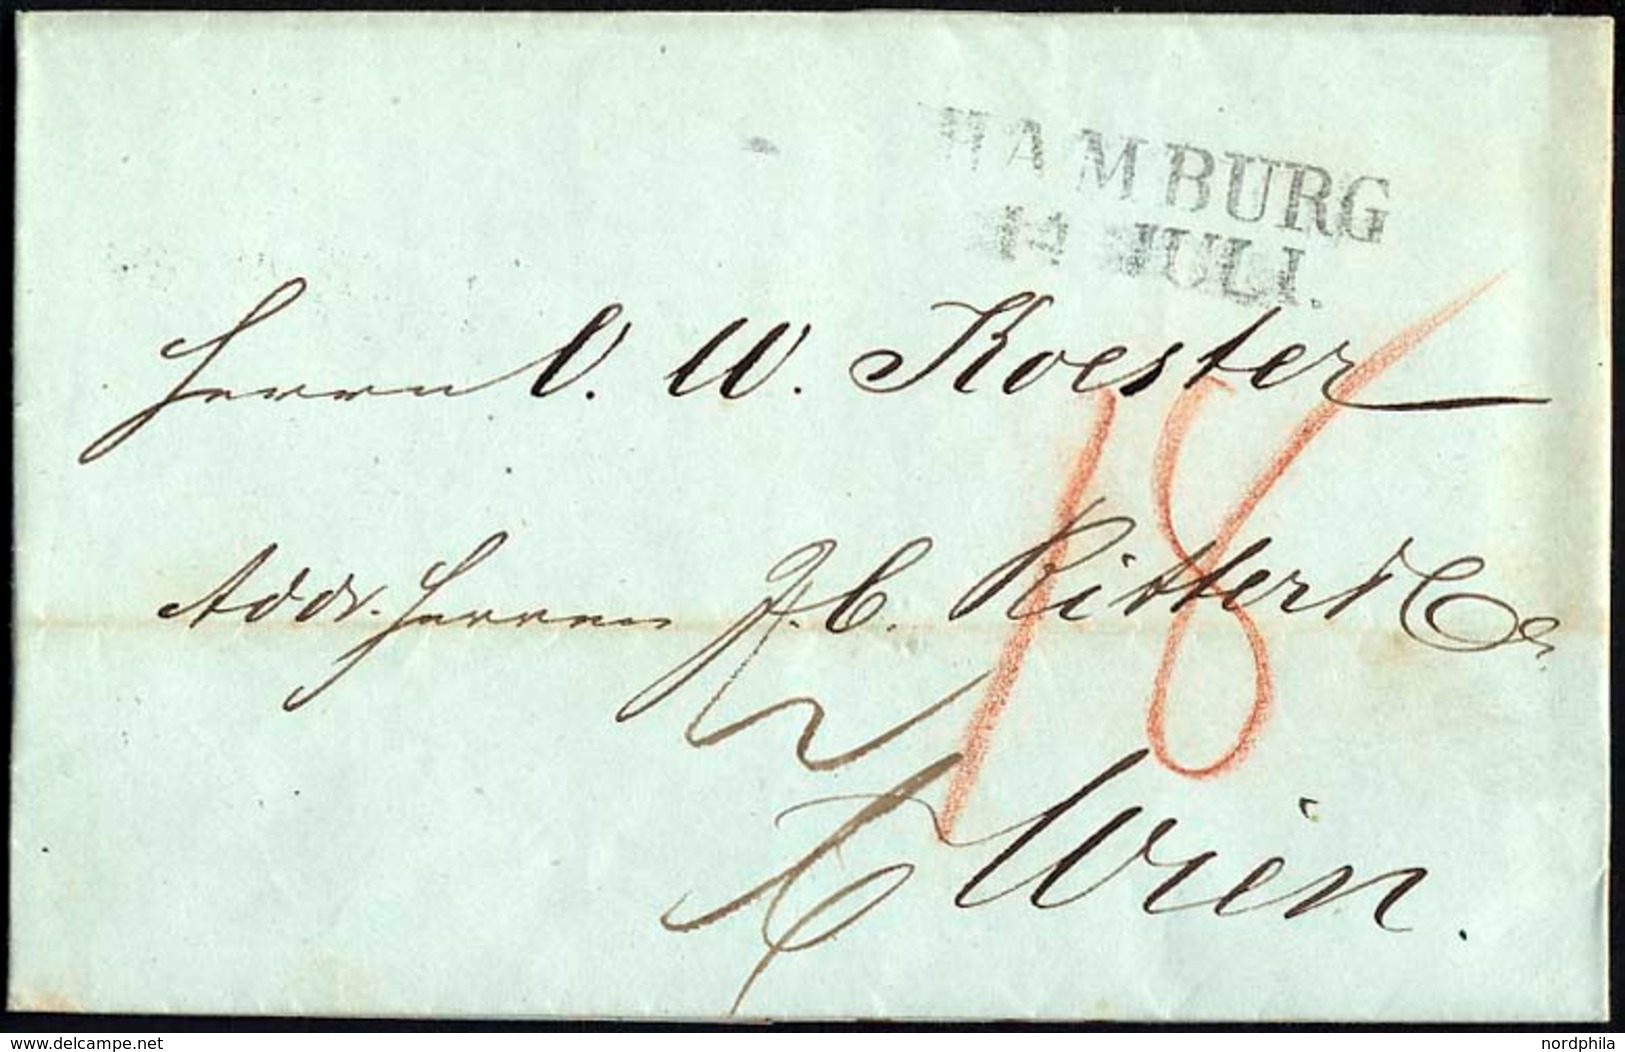 HAMBURG
14 JULI.
Herrn O. W. Koester
Addr. Herren J. C. Ritter & Co.
18
Wien.
www.delcampe.net
nordphila